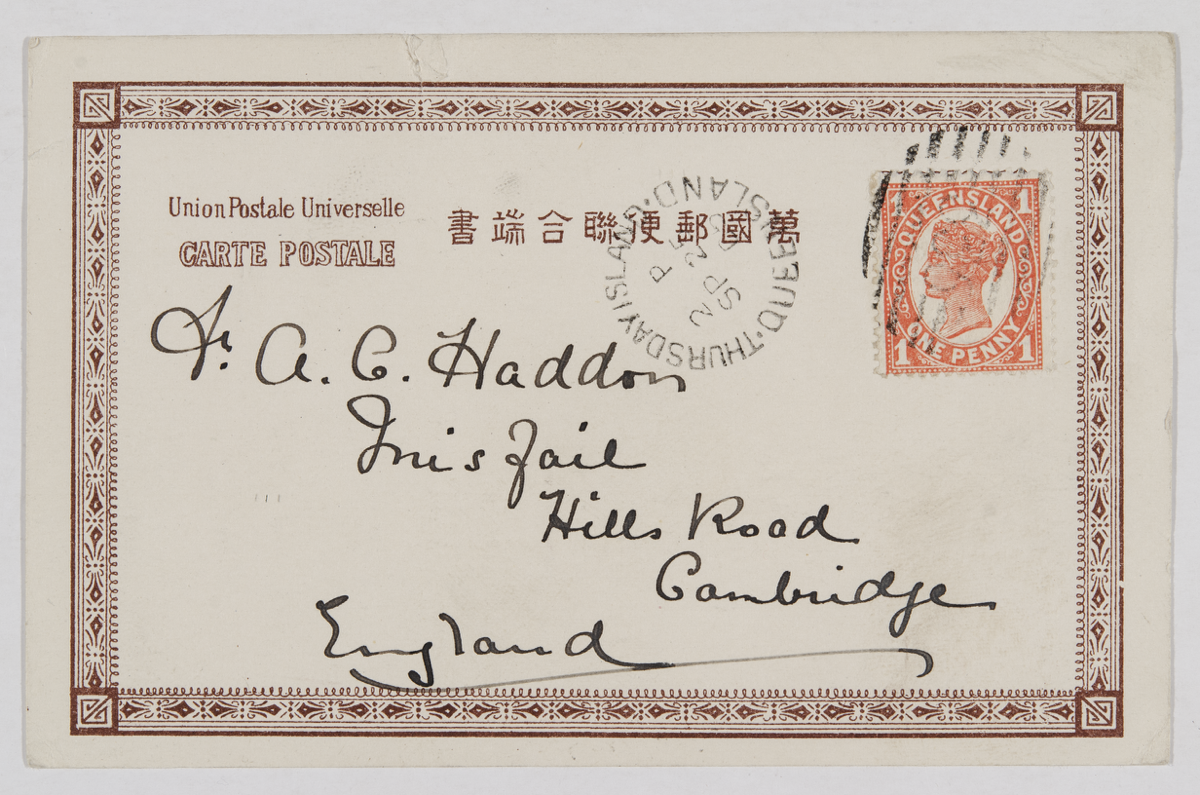 Union Postale Universelle
CARTE POSTALE
書端合聯便郵國萬
THURSDAY ISLAND. QUEENSLAND.
2 P
SP 25
QUEENSLAND
ONE PENNY
1
1
1
Dr. A. C. Haddon
Inisfail
Hills Road
Cambridge
England